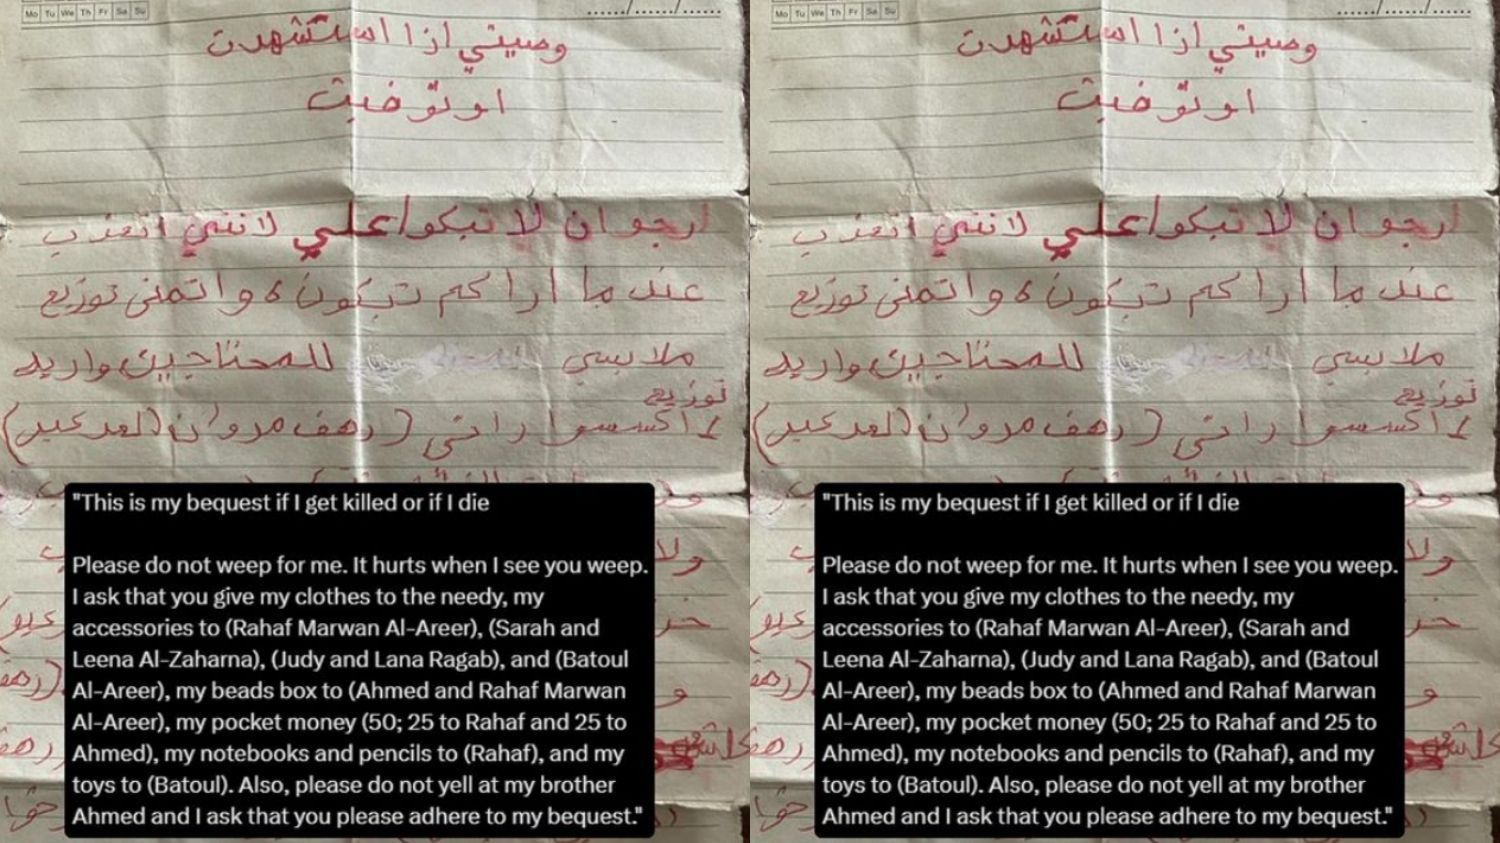 Mo Tu We Th Fr Sa Su
وصيتي اذا استشهدت
او توفيت
ارجو ان لا تبكوا علي لانني اتعذب
عندما اراكم تبكون و اتمنى توزيع
ملابسي للمحتاجين واريد
توزيع
اكسسواراتي (رهف مروان
"This is my bequest if I get killed or if I die
Please do not weep for me. It hurts when I see you weep.
I ask that you give my clothes to the needy, my
accessories to (Rahaf Marwan Al-Areer), (Sarah and
Leena Al-Zaharna), (Judy and Lana Ragab), and (Batoul
Al-Areer), my beads box to (Ahmed and Rahaf Marwan
Al-Areer), my pocket money (50; 25 to Rahaf and 25 to
Ahmed), my notebooks and pencils to (Rahaf), and my
toys to (Batoul). Also, please do not yell at my brother
Ahmed and I ask that you please adhere to my bequest."
Mo Tu We Th Fr Sa Su
وصيتي اذا استشهدت
او توفيت
ارجو ان لا تبكوا علي لانني اتعذب
عندما اراكم تبكون و اتمنى توزيع
ملابسي للمحتاجين واريد
توزيع
اكسسواراتي (رهف مروان
"This is my bequest if I get killed or if I die
Please do not weep for me. It hurts when I see you weep.
I ask that you give my clothes to the needy, my
accessories to (Rahaf Marwan Al-Areer), (Sarah and
Leena Al-Zaharna), (Judy and Lana Ragab), and (Batoul
Al-Areer), my beads box to (Ahmed and Rahaf Marwan
Al-Areer), my pocket money (50; 25 to Rahaf and 25 to
Ahmed), my notebooks and pencils to (Rahaf), and my
toys to (Batoul). Also, please do not yell at my brother
Ahmed and I ask that you please adhere to my bequest."